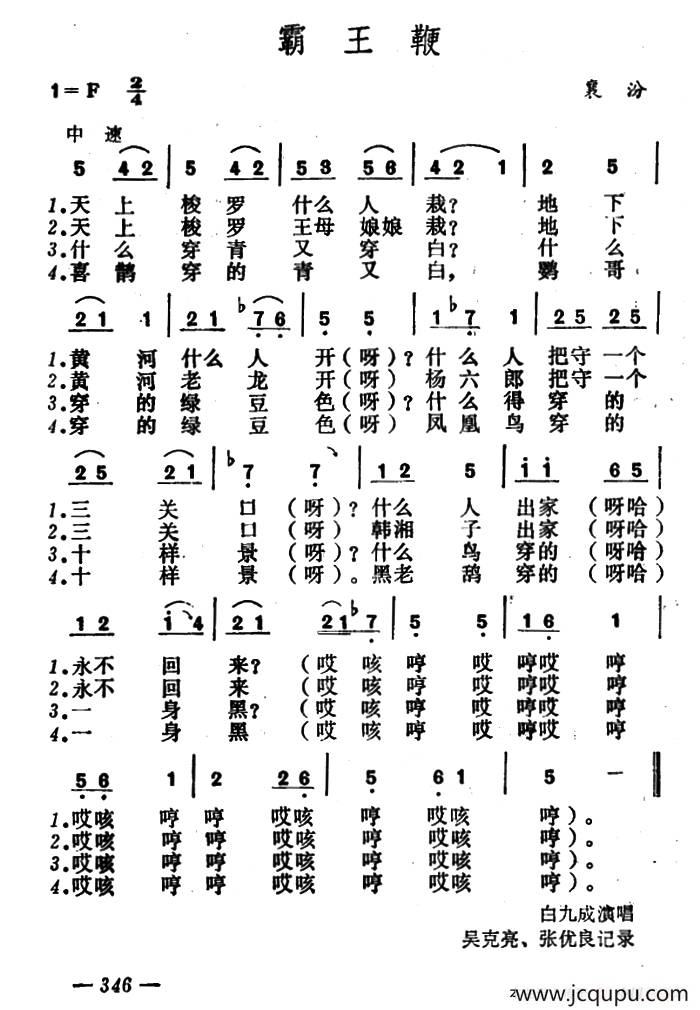 霸王鞭
1=F 2/4 襄汾
中速
5 42 | 5 42 | 53 56 | 42 1 | 2 5 |
1.天上 梭罗 什么 人 栽? 地 下
2.天上 梭罗 王母 娘娘 栽? 地 下
3.什么 穿青 又 穿 白? 什 么
4.喜鹊 穿的 青 又 白, 鹦 哥
21 1 | 21 ♭76 | 5 5 | 1♭7 1 | 25 25 |
1.黄 河 什么 人 开(呀)? 什么 人 把守 一个
2.黄 河 老 龙 开(呀) 杨六 郎 把守 一个
3.穿 的 绿 豆 色(呀)? 什么 得 穿 的
4.穿 的 绿 豆 色(呀) 凤凰 鸟 穿 的
25 21 | ♭7 7 | 12 5 | ii 65 |
1.三 关 口 (呀)? 什么 人 出家 (呀哈)
2.三 关 口 (呀) 韩湘 子 出家 (呀哈)
3.十 样 景 (呀)? 什么 鸟 穿的 (呀哈)
4.十 样 景 (呀)。黑老 鸹 穿的 (呀哈)
12 i4 | 21 21♭7 | 5 5 | 16 1 |
1.永不 回 来? (哎 咳 哼 哎 哼哎 哼
2.永不 回 来 (哎 咳 哼 哎 哼哎 哼
3.一 身 黑? (哎 咳 哼 哎 哼哎 哼
4.一 身 黑 (哎 咳 哼 哎 哼哎 哼
56 1 | 2 26 | 5 61 | 5 — ‖
1.哎咳 哼 哼 哎咳 哼 哎咳 哼)。
2.哎咳 哼 哼 哎咳 哼 哎咳 哼)。
3.哎咳 哼 哼 哎咳 哼 哎咳 哼)。
4.哎咳 哼 哼 哎咳 哼 哎咳 哼)。
白九成演唱
吴克亮、张优良记录
— 346 —
www.jcqupu.com